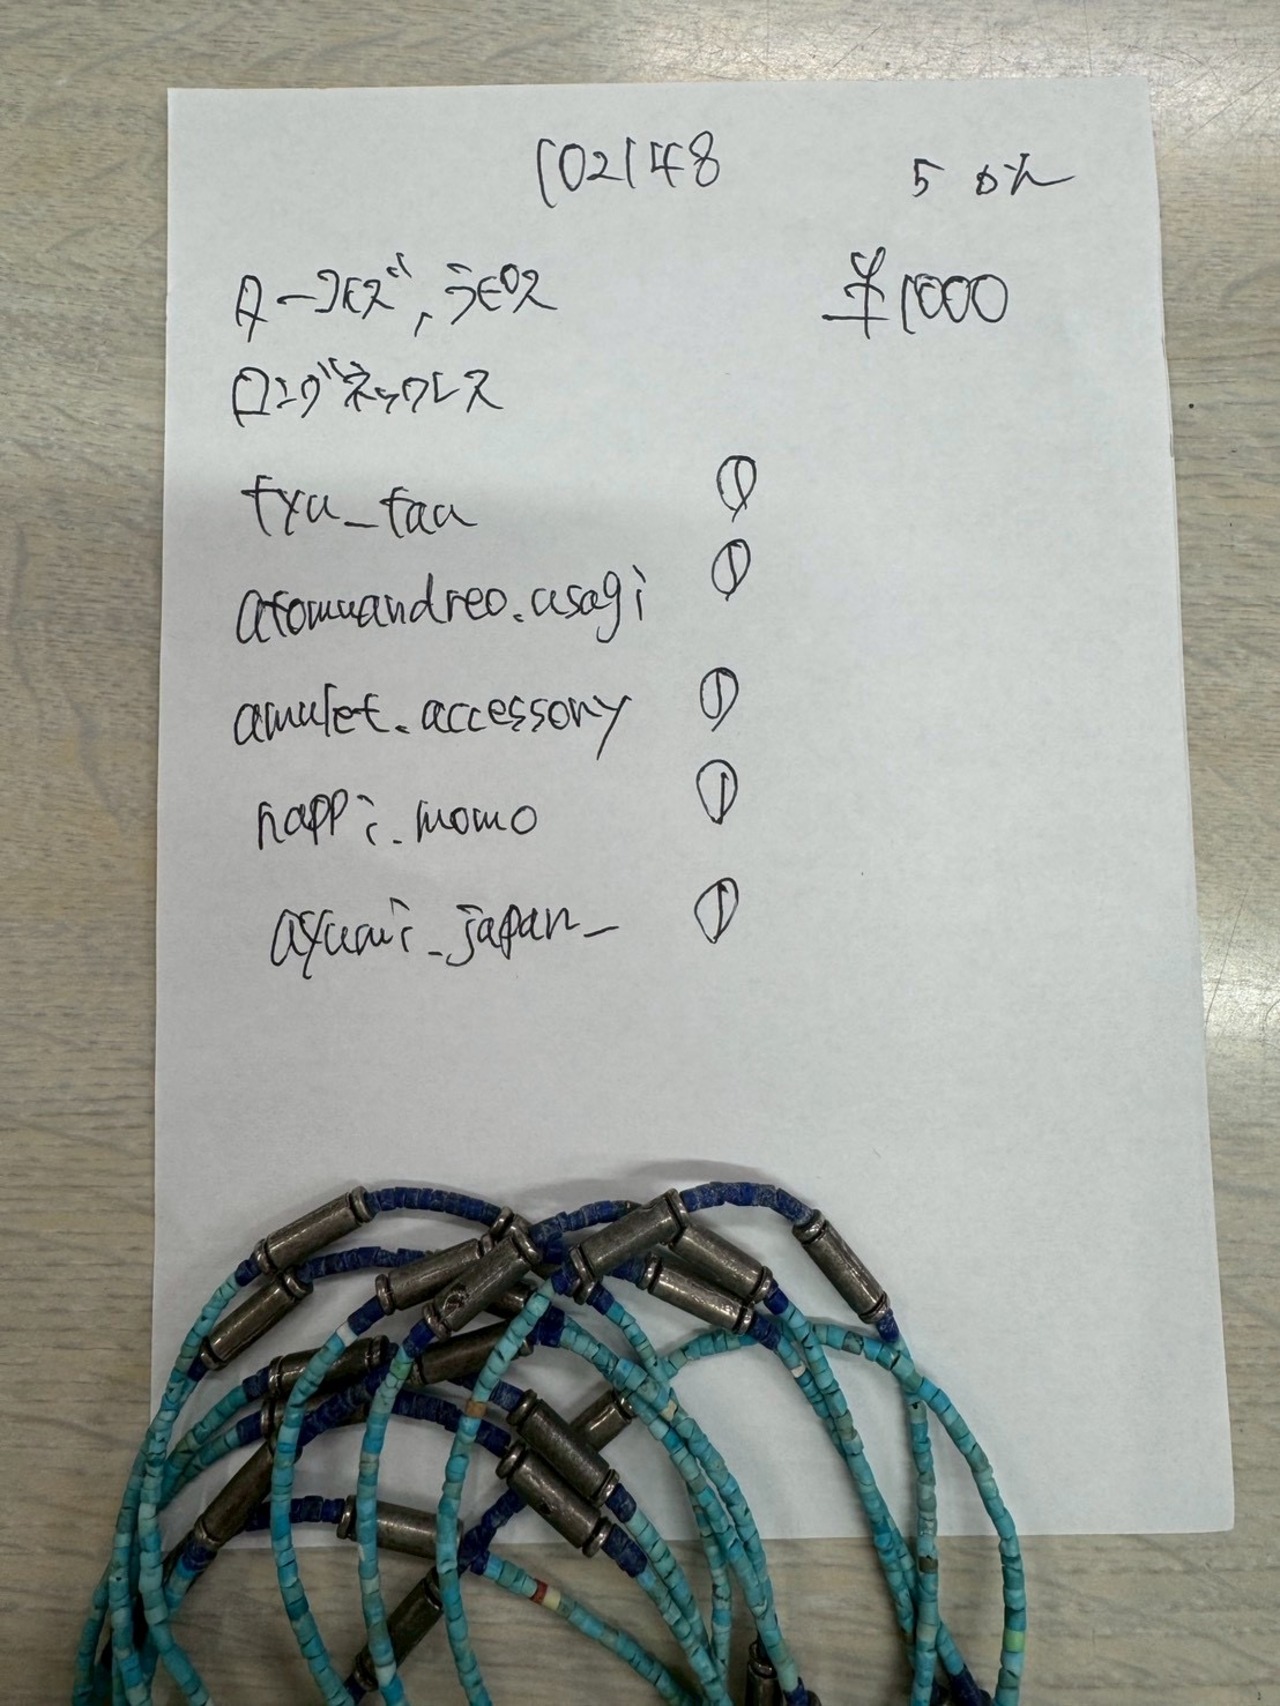 102148 5 0%
ターコイズ, ラピス ¥1000
ロングネックレス
fyu_fau ①
atomuandreo.usagi ①
amulet.accessory ①
happi.momo ①
ayumi_japan_ ①